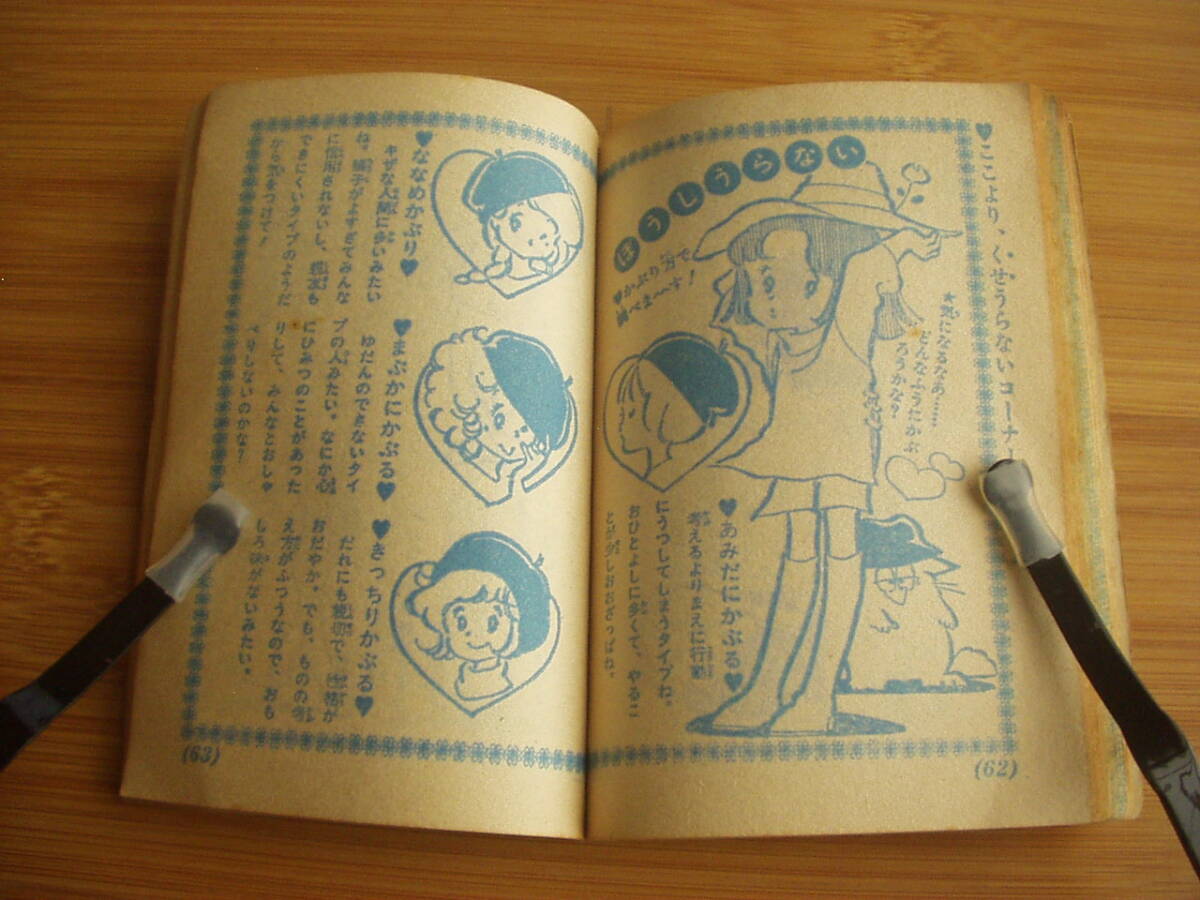 ♥ここより、くせうらないコーナー
ぼうしうらない
♥かぶり方で
調べま〜す！
★気になるなあ……
どんなふうにかぶ
ろうかな？
♥あみだにかぶる♥
考えるよりまえに行動
にうつしてしまうタイプね。
おひとよしに多くて、やるこ
とが少しおおざっぱね。
(62)
♥ななめかぶり♥
キザな人間に多いみたい
ね。調子がよすぎてみんな
に信用されないし、親友も
できにくいタイプのようだ
から気をつけて！
♥まぶかにかぶる♥
ゆだんのできないタイ
プの人みたい。なにか心
にひみつのことがあった
りして、みんなとおしゃ
べりしないのかな？
♥きっちりかぶる♥
だれにも親切で、性格が
おだやか。でも、ものの考
え方がふつうなので、おも
しろ味がないみたい。
(63)